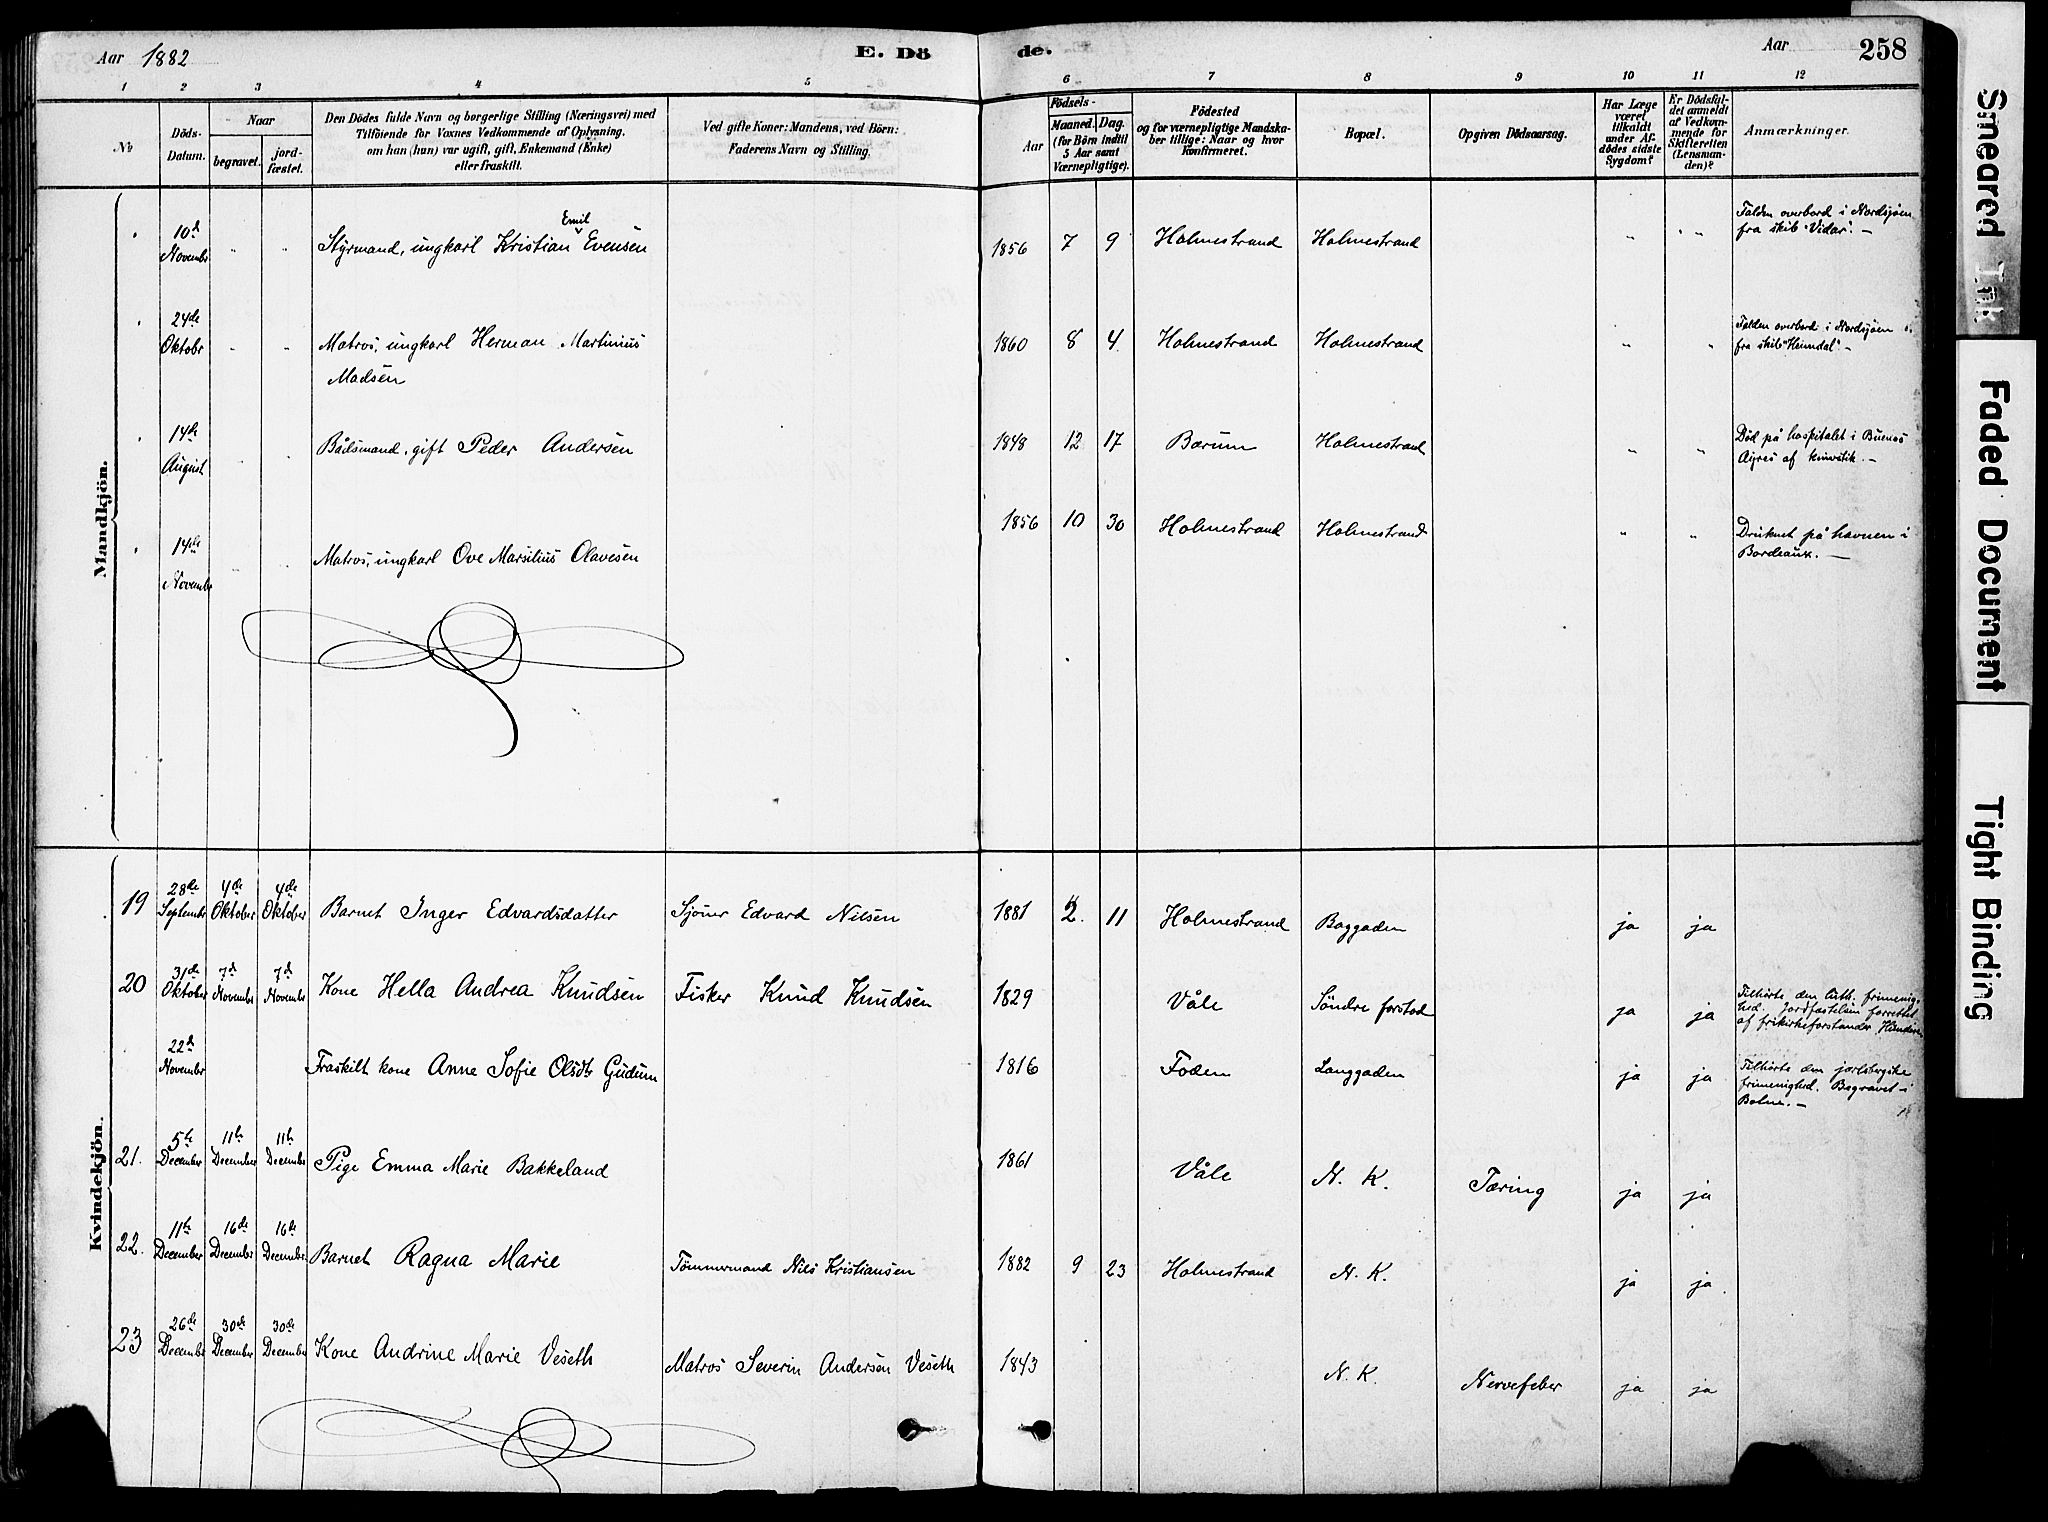 Aar 1882
E. Dö
de.
Aar
258
1 2 3 4 5 6 7 8 9 10 11 12
No
Döds-
Datum.
Naar
begravet.
jord-
fæstet.
Den Dödes fulde Navn og borgerlige Stilling (Næringsvei) med
Tilföiende for Voxnes Vedkommende af Oplysning,
om han (hun) var ugift, gift, Enkemand (Enke)
eller fraskilt.
Ved gifte Koner: Mandens, ved Börn:
Faderens Navn og Stilling.
Födsels-
Aar
Maaned. Dag.
(for Börn indtil
5 Aar samt
Værnepligtige).
Födested
og for værnepligtige Mandska-
ber tillige: Naar og hvor
konfirmeret.
Bopæl.
Opgiven Dödsaarsag.
Har Læge
været
tilkaldt
under Af-
dödes sidste
Sygdom?
Er Dödsfal-
det anmeldt
af Vedkom-
mende for
Skifteretten
(Lensman-
den)?
Anmærkninger.
Mandkjön.
10d
Novembr
Emil
Styrmand, ungkarl Kristian Evensen
1856 7 9 Holmestrand Holmestrand
Falden overbord i Nordsjøen
fra skib "Vidar". –
24de
Oktobr
Matros, ungkarl Herman Martinius
Madsen
1860 8 4 Holmestrand Holmestrand
Falden overbord i Nordsjøen
fra skib "Heimdal". –
14de
August
Bådsmand, gift Peder Andersen
1848 12 17 Bærum Holmestrand
Død på hospitalet i Buenos
Ayres af knivstik. –
14de
Novembr
Matros, ungkarl Ove Marsilius Olavesen
1856 10 30 Holmestrand Holmestrand
Druknet på havnen i
Bordeaux. –
Kvindekjön.
19
28de
Septembr
4de
Oktober
4de
Oktober
Barnet Inger Edvardsdatter
Sjømr Edvard Nilsen
1881 2. 11 Holmestrand Baggaden ja ja
20
31de
Oktober
7d
Novembr
7d
Novembr
Kone Hella Andrea Knudsen
Fisker Knud Knudsen
1829 Våle Søndre forstad ja ja
Tilhørte den luth. frimenig-
hed. Jordfæstelsen forrettet
af frikirkeforstander
22de
Novembr
Fraskilt kone Anne Sofie Olsdtr Gudum
1816 Foden Langgaden ja ja
Tilhørte den jarlsbergske
frimenighed. Begravet i
Botne. –
21.
5te
December
11te
December
11te
December
Pige Emma Marie Bakkeland
1861 Våle N. K. Tæring ja ja
22.
11te
December
16de
Decembr
16de
December
Barnet Ragna Marie
Tømmermand Nils Kristiansen
1882 9 23 Holmestrand N. K. ja ja
23
26de
Decembr
30de
December
30de
December
Kone Andrine Marie Veseth
Matros Severin Andersen Veseth
1843 N. K. Nervefeber ja ja
Smeared Ink
Faded Document
Tight Binding